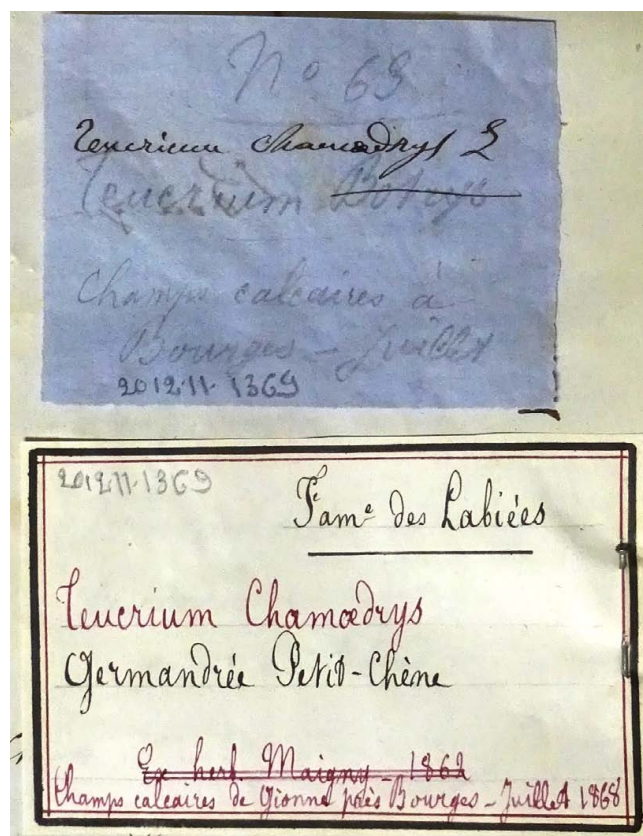 N° 69
Teucrium chamaedrys L
Teucrium Botrys
Champs calcaires à
Bourges - Juillet
2012.11.1369
2012.11.1369
Fam.e des Labiées
Teucrium Chamœdrys
Germandrée Petit-Chêne
Ex herb. Maigny - 1862
Champs calcaires de Gionne près Bourges - Juillet 1868